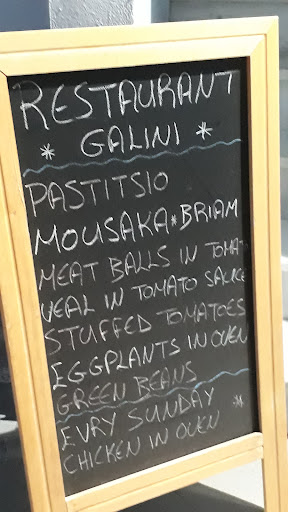 RESTAURANT
* GALINI *
PASTITSIO
MOUSAKA*BRIAM
MEAT BALLS IN TOMAT
VEAL IN TOMATO SAUCE
STUFFED TOMATOES
EGGPLANTS IN OVEN
GREEN BEANS
EVRY SUNDAY *
CHICKEN IN OVEN